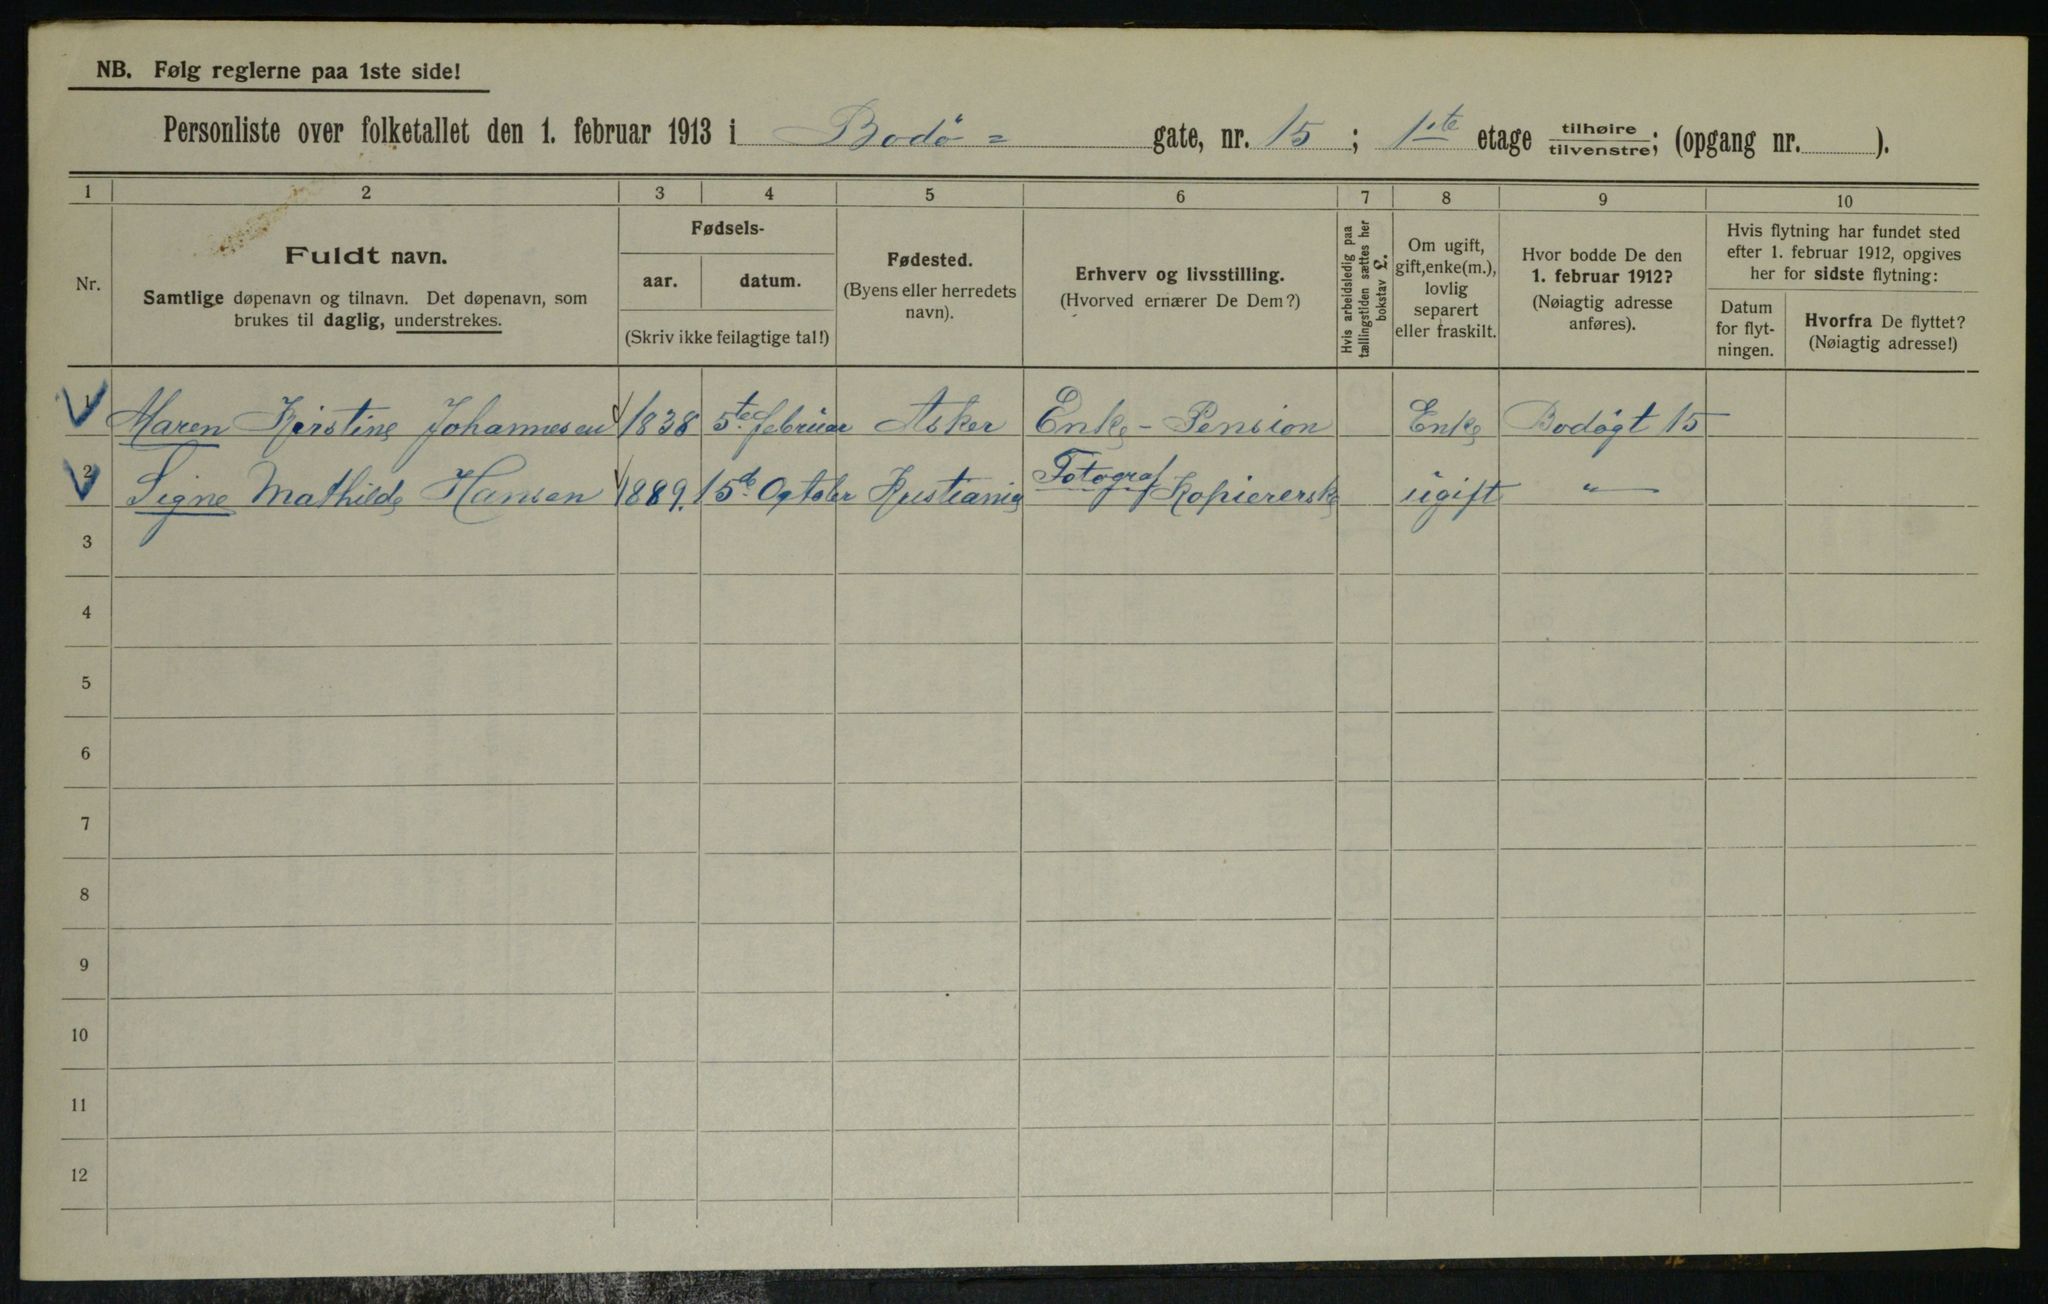 NB. Følg reglerne paa 1ste side!
Personliste over folketallet den 1. februar 1913 i Bodö= gate, nr. 15 ; 1ste etage tilhøire tilvenstre; (opgang nr. ).
1 2 3 4 5 6 7 8 9 10
Nr.
Fuldt navn.
Samtlige døpenavn og tilnavn. Det døpenavn, som
brukes til daglig, understrekes.
Fødsels-
aar. datum.
(Skriv ikke feilagtige tal!)
Fødested.
(Byens eller herredets
navn).
Erhverv og livsstilling.
(Hvorved ernærer De Dem?)
Hvis arbeidsledig paa
tællingstiden sættes her
bokstav £.
Om ugift,
gift, enke(m.),
lovlig
separert
eller fraskilt.
Hvor bodde De den
1. februar 1912?
(Nøiagtig adresse
anføres).
Hvis flytning har fundet sted
efter 1. februar 1912, opgives
her for sidste flytning:
Datum
for flyt-
ningen.
Hvorfra De flyttet?
(Nøiagtig adresse!)
1 Maren Kirstine Johannesen 1838 5te februar Asker Enke - Pension Enke Bodögt 15
2 Signe Mathilde Hansen 1889. 15de Octoler Kristiania Fotograf Kopiererske ugift "
3
4
5
6
7
8
9
10
11
12